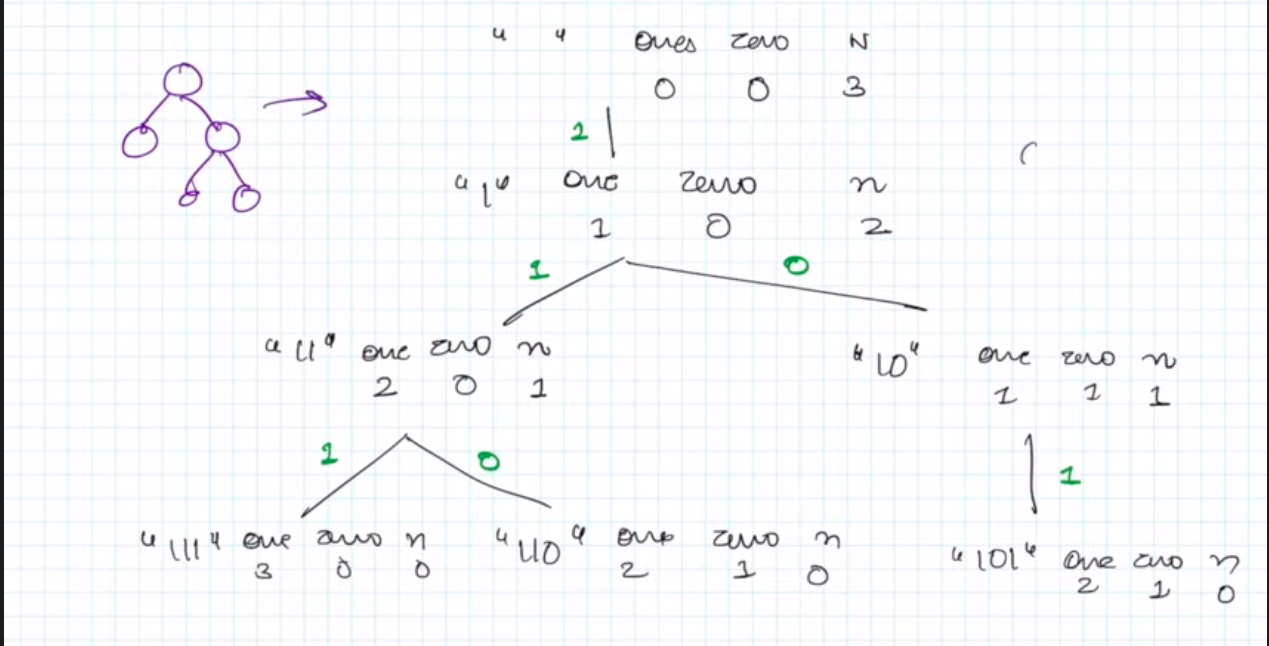 " " ones zero N
0 0 3
1
"1" one zero n
1 0 2
1 0
"11" one zero n
2 0 1
"10" one zero n
1 1 1
1 0
1
"111" one zero n
3 0 0
"110" one zero n
2 1 0
"101" one zero n
2 1 0